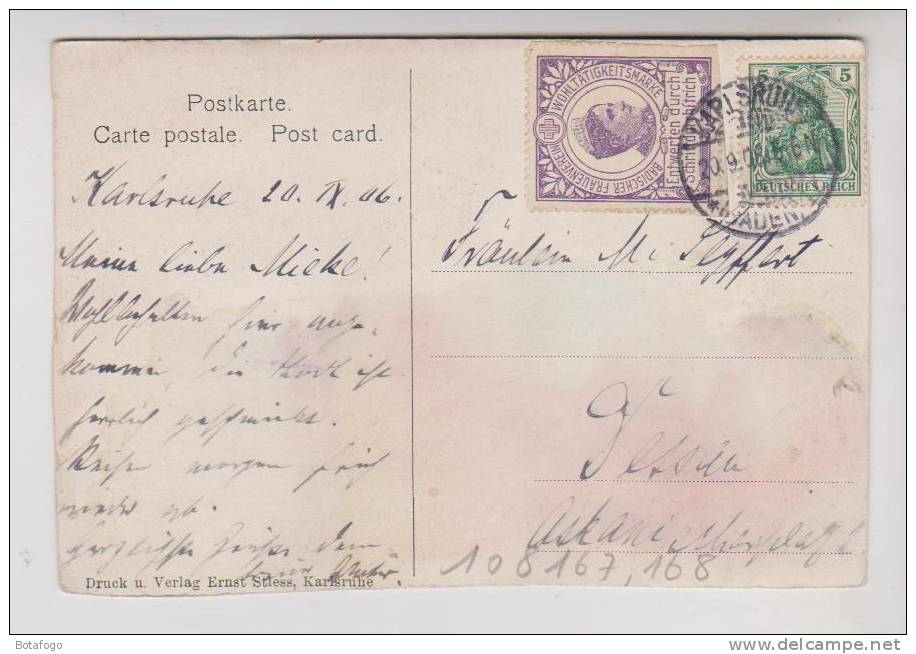 Postkarte.
Carte postale. Post card.
Karlsruhe 20. IX 06.
Meine liebe Mieke!
Wohlbehalten hier ange-
kommen, die Stadt ist
herrlich geschmückt.
Reisen morgen früh
wieder ab.
Herzliche Grüße
Druck u. Verlag Ernst Stiess, Karlsruhe
WOHLTÄTIGKEITSMARKE
BADISCHER FRAUENVEREIN
Entwerten durch
Schrift
5 5
DEUTSCHES REICH
KARLSRUHE
20.9.06
(BADEN)
Fräulein M. Seyffert
Dessau
108167,168
Botafogo
www.delcampe.net